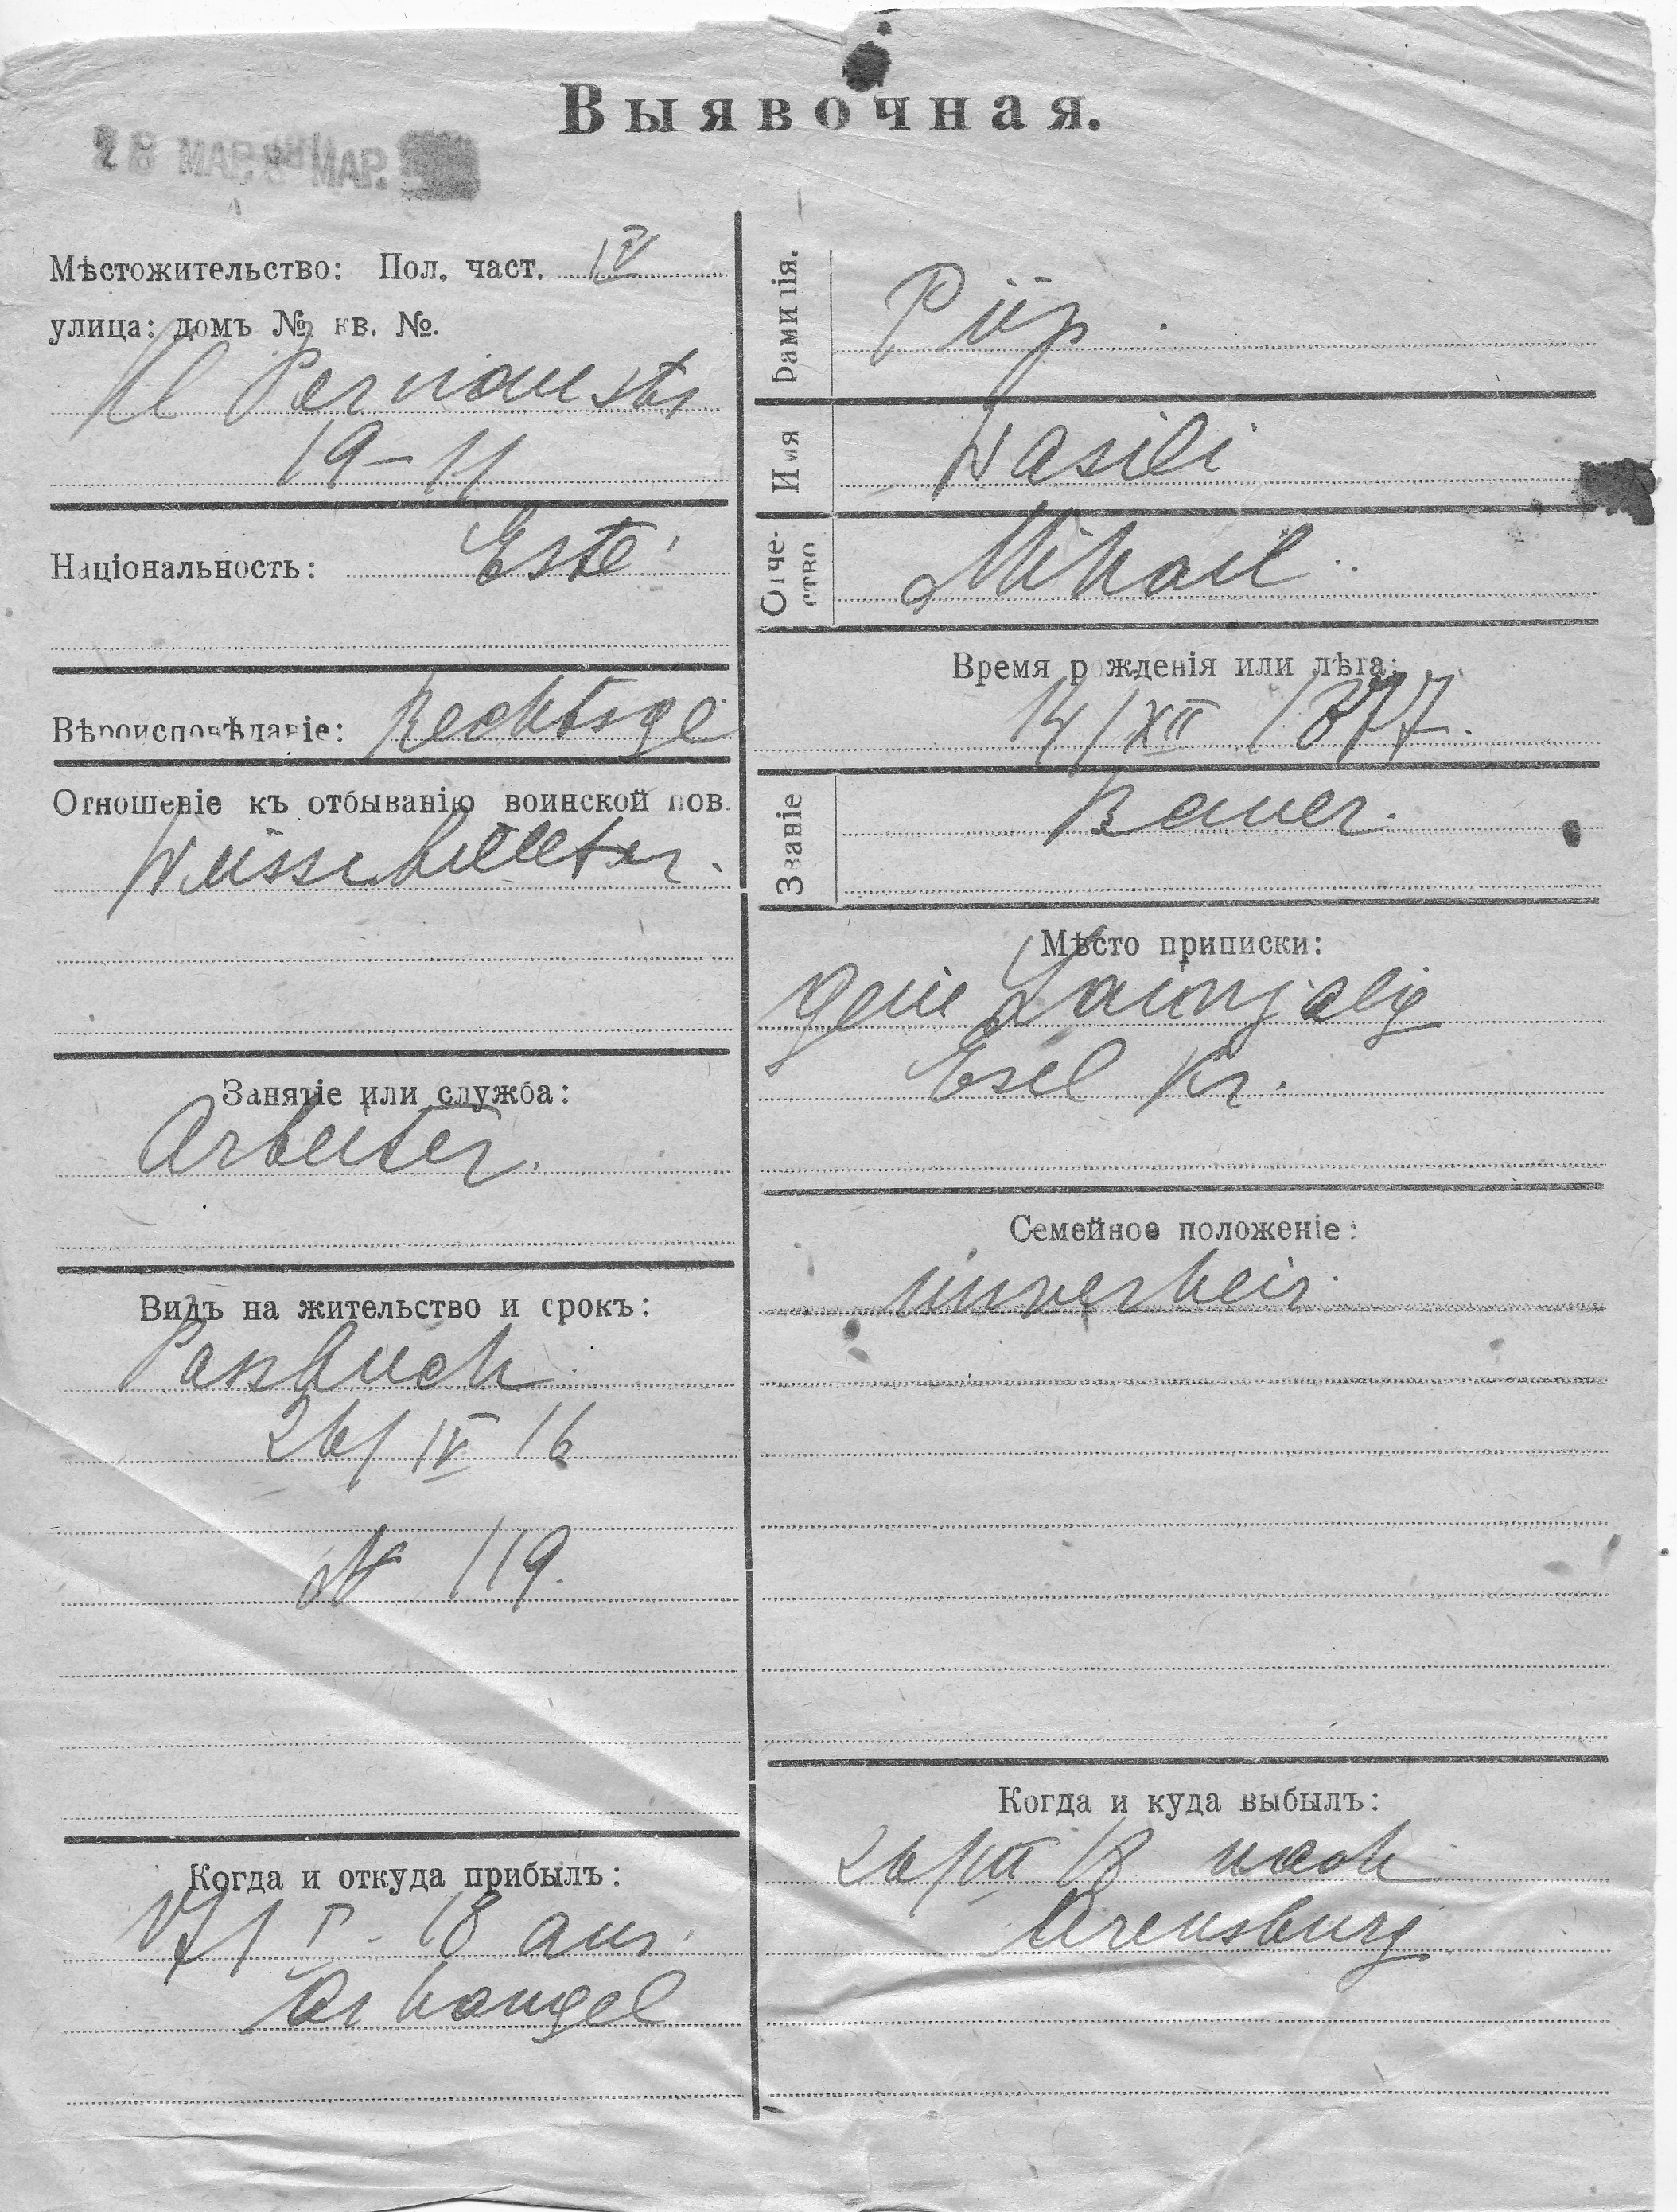 Выявочная.
28 МАР. МАР.
Мѣстожительство: Пол. част. IV
улица: домъ № кв. №.
Kl Pernaustr
19–11
Національность: Este
Вѣроисповѣданіе: Rechtsgl
Отношеніе къ отбыванію воинской пов.
Занятіе или служба:
Arbeiter.
Видъ на жительство и срокъ:
Passbuch
26/IV 16
№ 119.
Когда и откуда прибылъ:
17/I - 18 aus
Arhangel
Фамилія. Piip
Имя Wasili
Отчество Mihail
Время рожденія или лѣта:
14/XII 1877.
Званіе Bauer.
Мѣсто приписки:
Gem Laimjalg
Esel Kr.
Семейное положеніе:
unverheir.
Когда и куда выбылъ:
18 nach
Arensburg